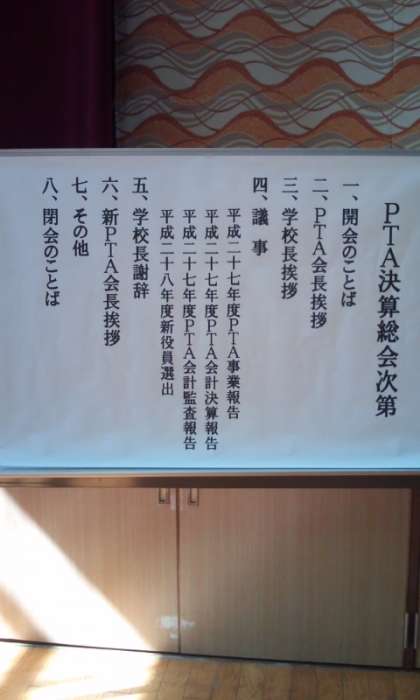 PTA決算総会次第
一、開会のことば
二、PTA会長挨拶
三、学校長挨拶
四、議 事
平成二十七年度PTA事業報告
平成二十七年度PTA会計決算報告
平成二十七年度PTA会計監査報告
平成二十八年度新役員選出
五、学校長謝辞
六、新PTA会長挨拶
七、その他
八、閉会のことば